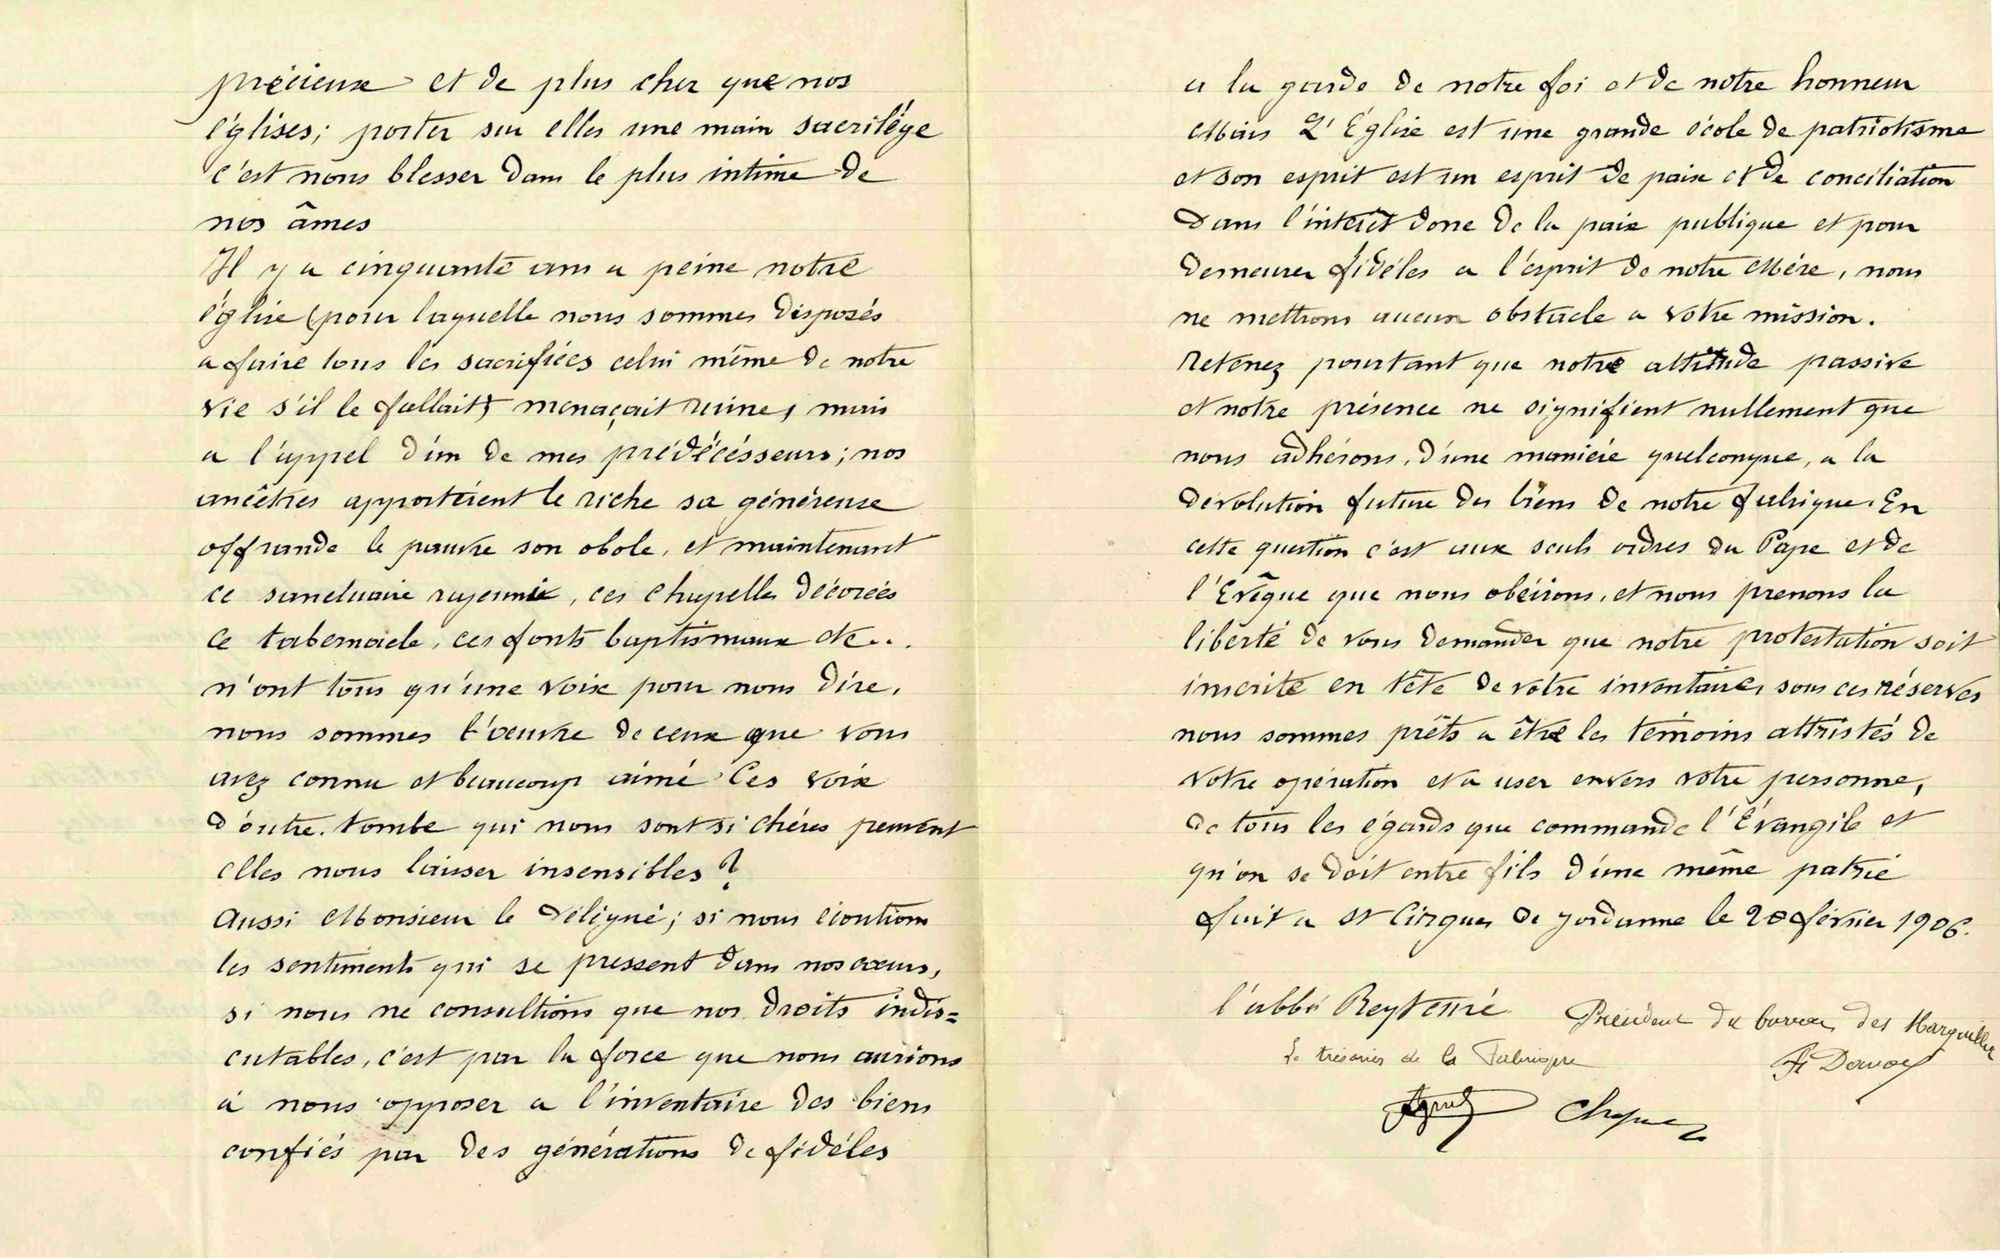 précieux et de plus cher que nos
églises; porter sur elles une main sacrilège
c'est nous blesser dans le plus intime de
nos âmes
Il y a cinquante ans a peine notre
église (pour laquelle nous sommes disposés
a faire tous les sacrifices celui même de notre
vie s'il le fallait) menaçait ruine, mais
a l'appel d'un de mes prédécésseurs; nos
ancêtres apportèrent le riche sa généreuse
offrande le pauvre son obole, et maintenant
ce sanctuaire rajeuni, ces chapelles décorées
ce tabernacle, ces fonts baptismaux etc...
n'ont tous qu'une voix pour nous dire,
nous sommes l'œuvre de ceux que vous
avez connu et beaucoup aimé Ces voix
d'outre-tombe qui nous sont si chères peuvent
elles nous laisser insensibles?
Aussi Monsieur le Délégué; si nous écoutions
les sentiments qui se pressent dans nos cœurs,
si nous ne consultions que nos droits indis=
cutables, c'est par la force que nous aurions
à nous opposer a l'inventaire des biens
confiés par des générations de fidèles
a la garde de notre foi et de notre honneur
Mais L'Église est une grande école de patriotisme
et son esprit est un esprit de paix et de conciliation
Dans l'intérêt donc de la paix publique et pour
demeurer fidèles a l'esprit de notre Mère, nous
ne mettrons aucun obstacle a votre mission.
Retenez pourtant que notre attitude passive
et notre présence ne signifient nullement que
nous adhérons, d'une manière quelconque, a la
dévolution future des biens de notre fabrique. En
cette question c'est aux seuls ordres du Pape et de
l'Evêque que nous obéirons, et nous prenons la
liberté de vous demander que notre protestation soit
inscrite en tête de votre inventaire, sous ces réserves
nous sommes prêts a être les témoins attristés de
votre opération et a user envers votre personne,
de tous les égards que commande l'Évangile et
qu'on se doit entre fils d'une même patrie
fait a St Cirgues de Jordanne le 20 février 1906.
l'abbé Reyt
Président du bureau des Marguilliers
Le trésorier de la Fabrique